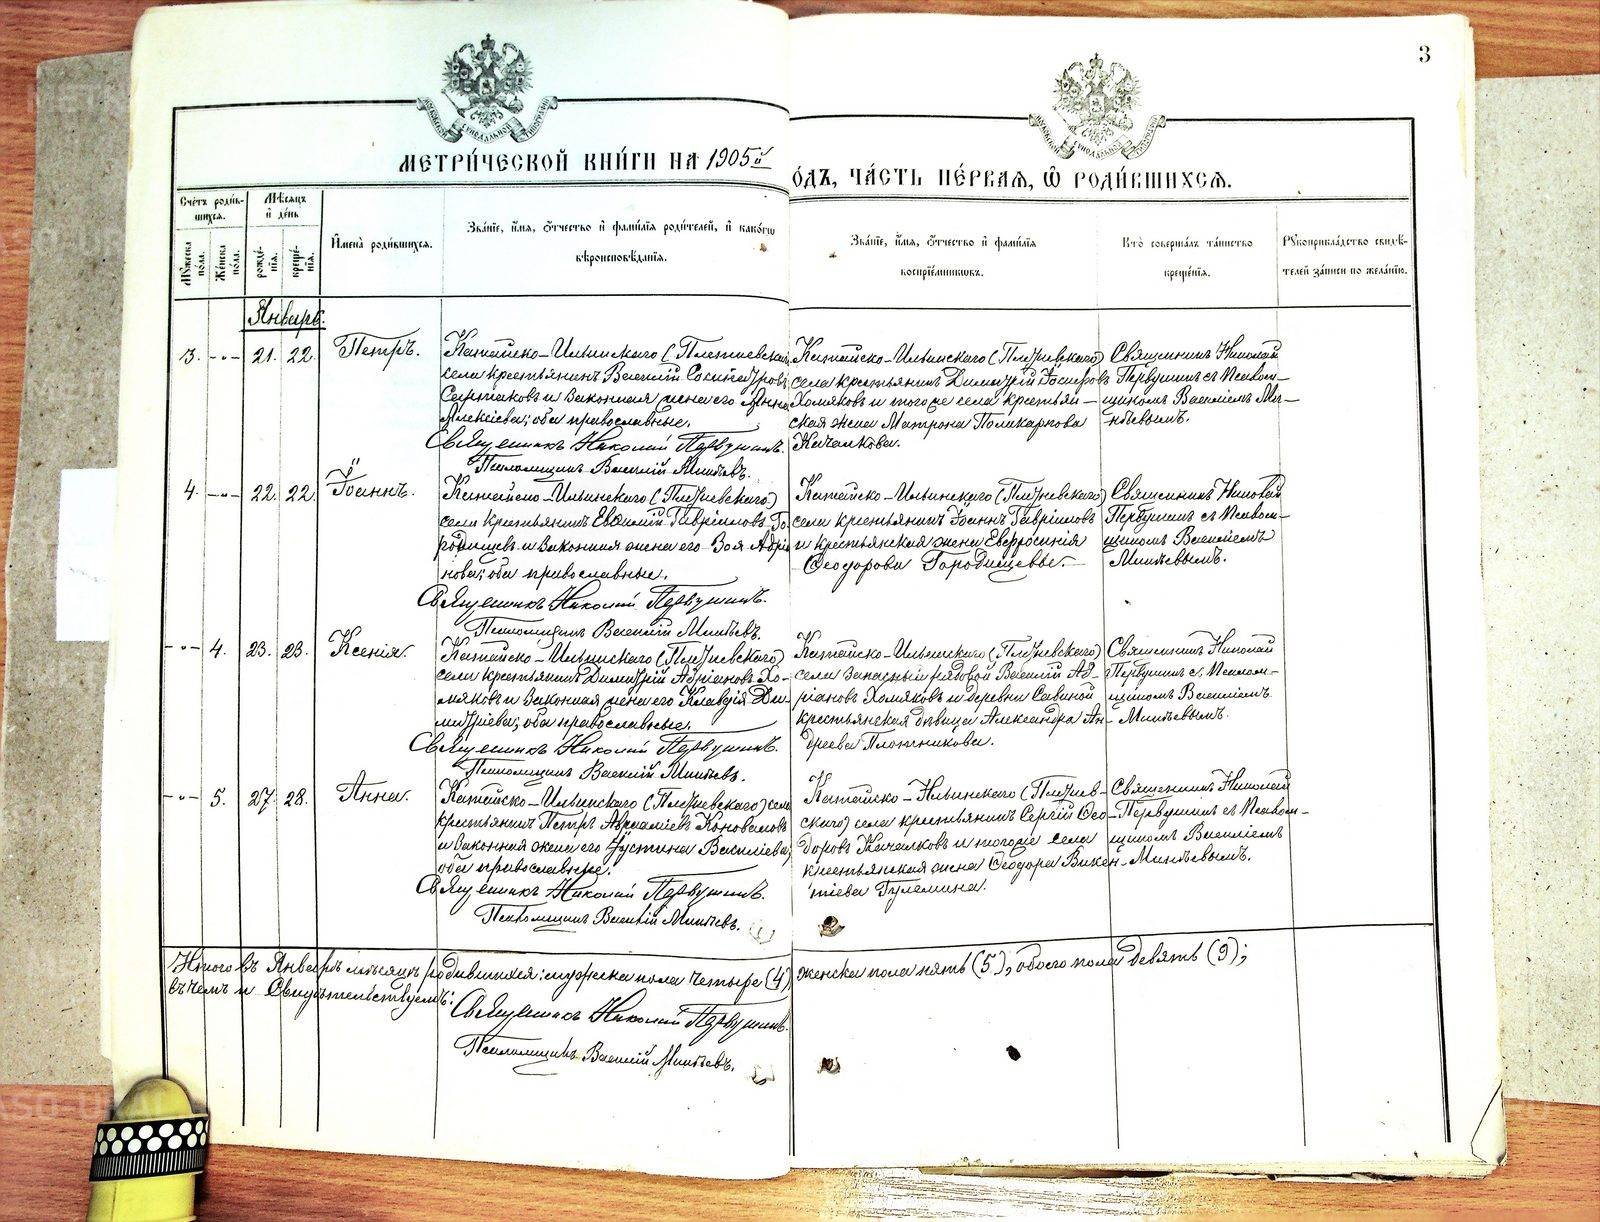 3
МОСКОВСКОЙ СѴНОДАЛЬНОЙ ТИПОГРАФІИ
МОСКОВСКОЙ СѴНОДАЛЬНОЙ ТИПОГРАФІИ
МЕТРИ́ЧЕСКОЙ КНИ́ГИ НА 1905й
ОДЪ, ЧА́СТЬ ПЕ́РВАЯ, Ѡ РОДИ́ВШИХСЯ.
Сче́тъ роди́в-
шихся.
Мѣ́сяцъ
и де́нь
Мꙋжеска по́ла.
Же́нска по́ла.
рожде́-
нія.
креще́-
нія.
Имена̀ роди́вшихся.
Зва́ніе, и́мя, ѻ҆́тчество и фами́лія роди́телей, и како́гѡ
вѣроисповѣ́данія.
Зва́ніе, и́мя, ѻ҆́тчество и фами́лія
воспріе́мниковъ.
Кто̀ соверша́лъ та́инство
креще́нія.
Рꙋкоприкла́дство свидѣ́-
телей за́писи по жела́нію.
Январь.
3. -„- 21. 22. Петръ.
Катайско-Ильинскаго (Плетневскаго)
села крестьянинъ Василій Сосипатровъ
и законная жена его Анна
Алексіева; оба православные.
Священникъ Николай Первушинъ.
Псаломщикъ Василій Минѣевъ.
Катайско-Ильинскаго (Плетневскаго)
села крестьянинъ Димитрій Іосифовъ
Хомяковъ и того же села крестьян-
ская жена Матрона Поликарпова
Качалкова.
Священникъ Николай
Первушинъ съ Псалом-
щикомъ Василіемъ Ми-
нѣевымъ.
4. -„- 22. 22. Іоаннъ.
Катайско-Ильинскаго (Плетневскаго)
села крестьянинъ Евѳимій Гавріиловъ Го-
родищевъ и законная жена его Зоя Адріа-
нова; оба православные.
Священникъ Николай Первушинъ.
Псаломщикъ Василій Минѣевъ.
Катайско-Ильинскаго (Плетневскаго)
села крестьянинъ Іоаннъ Гавріиловъ
и крестьянская жена Евфросинія
Ѳеодорова Городищевы.
Священникъ Николай
Первушинъ съ Псалом-
щикомъ Василіемъ
Минѣевымъ.
-„- 4. 23. 23. Ксенія.
Катайско-Ильинскаго (Плетневскаго)
села крестьянинъ Димитрій Адріановъ Хо-
мяковъ и законная жена его Клавдія Ди-
митріева; оба православные.
Священникъ Николай Первушинъ.
Псаломщикъ Василій Минѣевъ.
Катайско-Ильинскаго (Плетневскаго)
села запасный рядовой Василій Ад-
ріановъ Хомяковъ и деревни Савиной
крестьянская дѣвица Александра Ан-
дреева Плотникова.
Священникъ Николай
Первушинъ съ Псалом-
щикомъ Василіемъ
Минѣевымъ.
-„- 5. 27. 28. Анна.
Катайско-Ильинскаго (Плетневскаго) села
крестьянинъ Петръ Авраамiевъ Коноваловъ
и законная жена его Іустина Василіева;
оба православные.
Священникъ Николай Первушинъ.
Псаломщикъ Василій Минѣевъ.
Катайско-Ильинскаго (Плетнев-
скаго) села крестьянинъ Сергій Ѳео-
доровъ Качалковъ и того же села
крестьянская жена Ѳеодора Викен-
тіева Гулемина.
Священникъ Николай
Первушинъ съ Псалом-
щикомъ Василіемъ
Минѣевымъ.
Итого въ Январѣ мѣсяцѣ родившихся: мужеска пола четыре (4), женска пола пять (5), обоего пола девять (9);
въ чемъ и свидѣтельствуемъ:
Священникъ Николай Первушинъ.
Псаломщикъ Василій Минѣевъ.